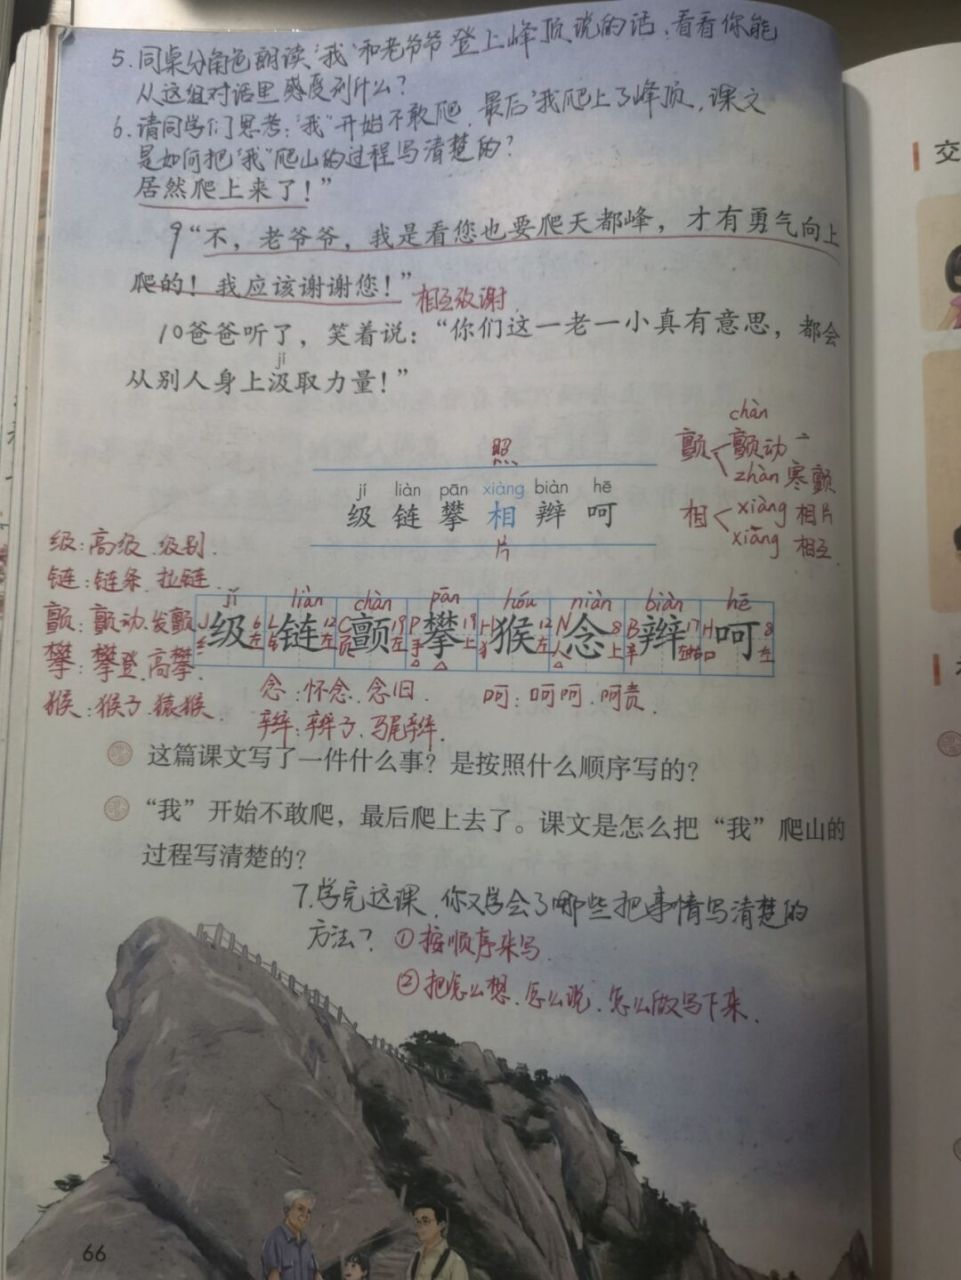 5.同桌分角色朗读“我”和老爷爷登上峰顶说的话，看看你能
从这组对话里感受到什么？
6.请同学们思考：“我”开始不敢爬，最后“我”爬上了峰顶，课文
是如何把“我”爬山的过程写清楚的？
居然爬上来了！”
9“不，老爷爷，我是看您也要爬天都峰，才有勇气向上
爬的！我应该谢谢您！”相互致谢
10爸爸听了，笑着说：“你们这一老一小真有意思，都会
jí
从别人身上汲取力量！”
chàn
颤 颤动
zhàn 寒颤
照
jí liàn pān xiàng biàn hē
级 链 攀 相 辫 呵
片
相 xiàng 相片
xiāng 相互
级：高级、级别.
链：链条、拉链.
颤：颤动、发颤
攀：攀登、高攀.
猴：猴子、猿猴.
jí liàn chàn pān hóu niàn biàn hē
级 链 颤 攀 猴 念 辫 呵
念：怀念、念旧.
呵：呵呵、呵责.
辫：辫子、马尾辫.
这篇课文写了一件什么事？是按照什么顺序写的？
“我”开始不敢爬，最后爬上去了。课文是怎么把“我”爬山的
过程写清楚的？
7.学完这课，你又学会了哪些把事情写清楚的
方法？①按顺序来写
②把怎么想、怎么说、怎么做写下来.
66
交